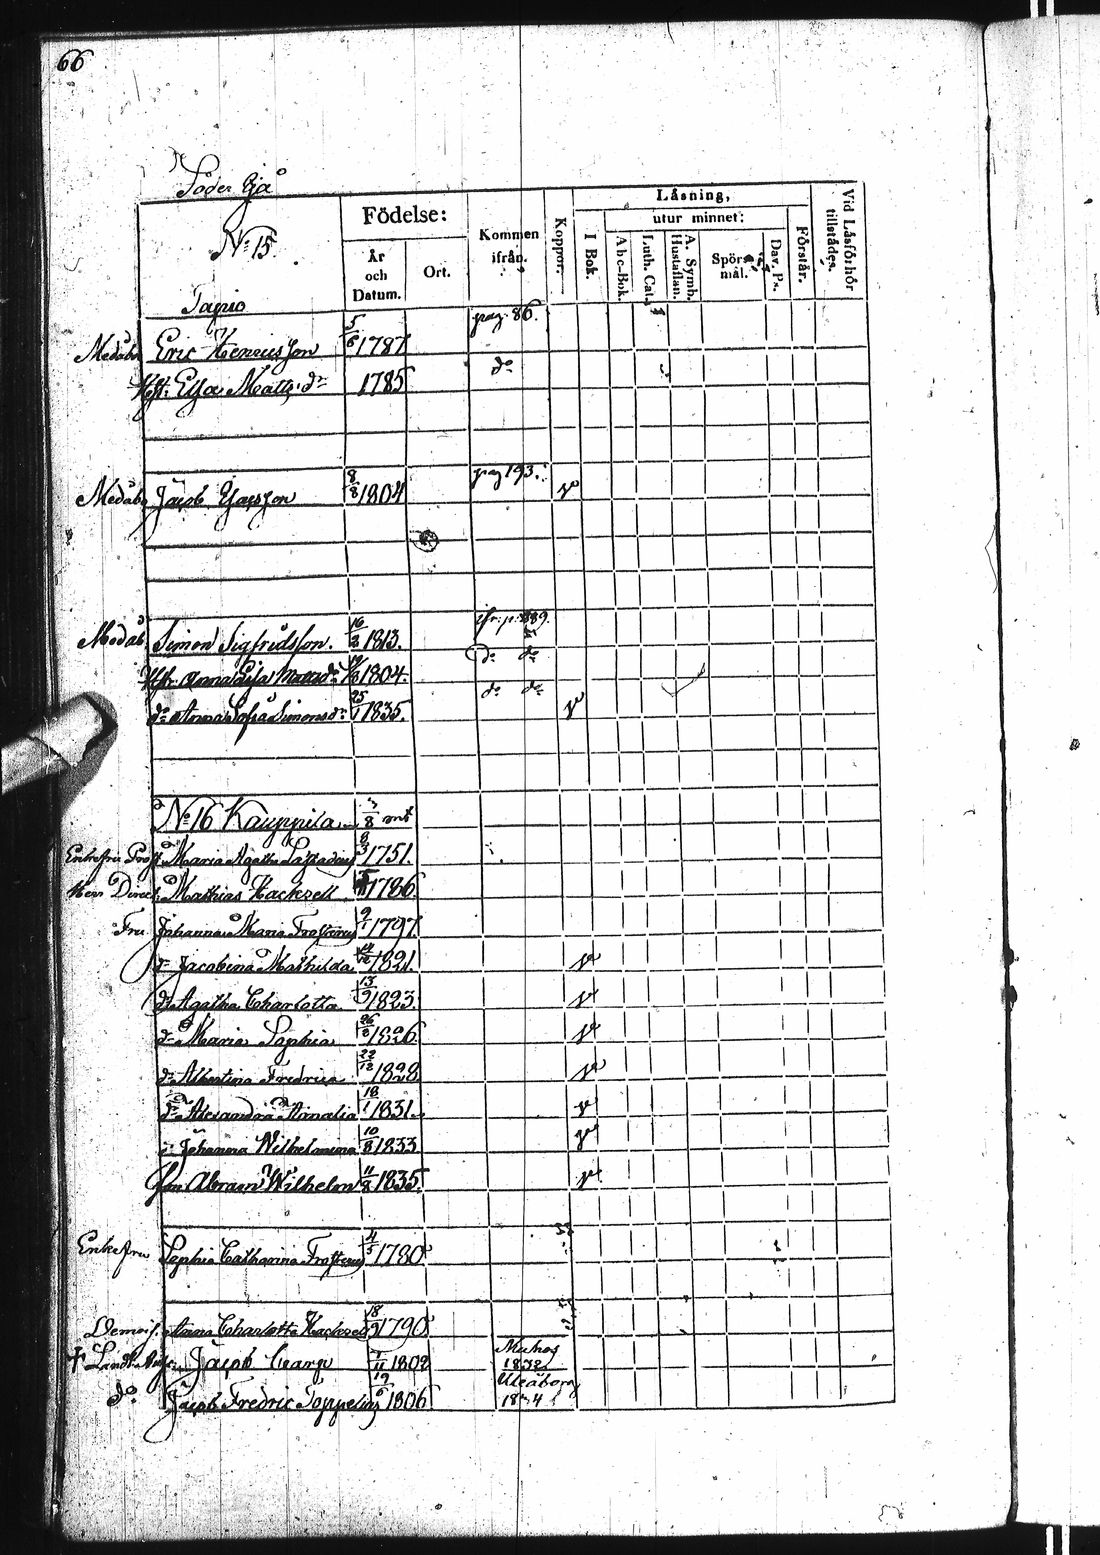 66
Söder Yjå
No 15.
Tapio
Födelse:
År och Datum.
Ort.
Kommen ifrån.
Koppor.
Läsning,
I Bok.
utur minnet:
Abc-Bok.
Luth. Cat.
A. Symb. Hustaflan.
Spörsmål.
Dav. Ps.
Förstår.
Vid Läsförhör tillstädes.
Medåbo Eric Henricsson 5/6 1787 pag 86.
Hust: Elsa Matts dr 1785 do
Medåbo Jacob 8/8 1804 pag 193. v
Medåb Simon Sigfridsson. 16/2 1813.
Hustr. Anna Lisa Mattsdr 1804 do do
do Anna Sofia Simonsdr 25/1 1835. do do v
No 16 Kauppila
Enkefru Prost Maria Agatha 1751.
Herr Direct Mathias Hacksell 1786
Fru Johanna Maria Frosterus 9/1 1797
dr Jacobina Mathilda 1821. v
dr Agatha Charlotta 13/9 1823. v
dr Maria Sophia 26/8 1826. v
dr Albertina Fredrica 22/12 1828 v
dr Alexandra Amalia 18/1 1831. v
dr Johanna Wilhelmina 10/8 1833 v
Son Abram Wilhelm 11/8 1835. v
Enkefru Sophia Catharina Frosterus 4/5 1780
Demois. Anna Charlotta Hacksell 18/9 1790
Jacob 1802 Muhos 1832
do Jacob Fredric Toppelius 19/6 1806 Uleåborg 1834